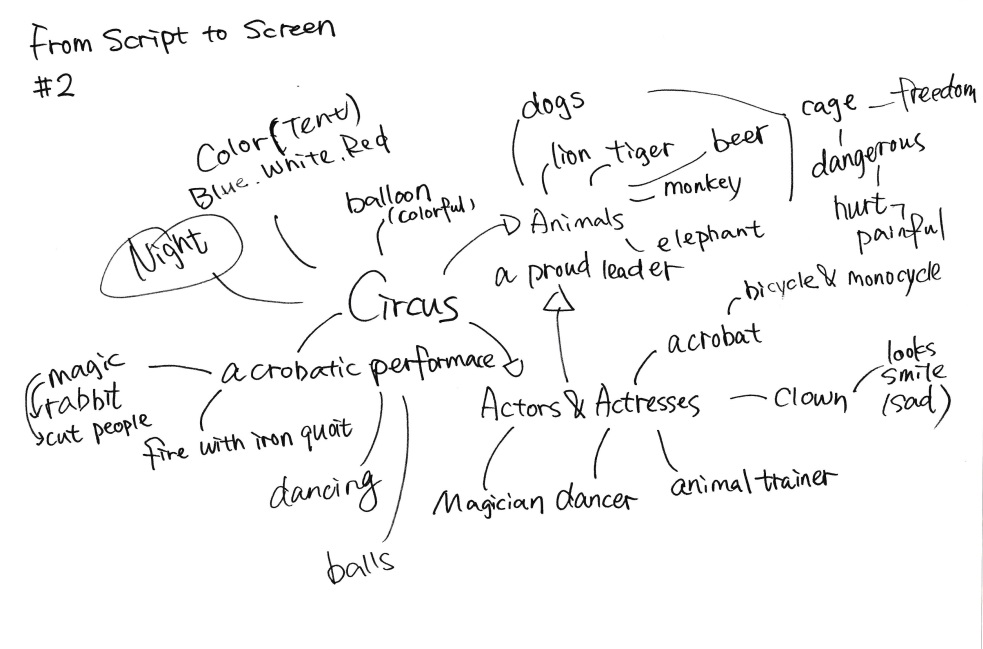 From Script to Screen
#2
Color(Tent)
Blue.White.Red
Night
balloon
(colorful)
Circus
dogs
lion tiger
beer
monkey
Animals
elephant
a proud leader
cage freedom
dangerous
hurt
painful
bicycle & monocycle
acrobat
looks
smile
(sad)
Clown
Actors & Actresses
Magician dancer
animal trainer
acrobatic performace
magic
rabbit
cut people
fire with iron quoit
dancing
balls